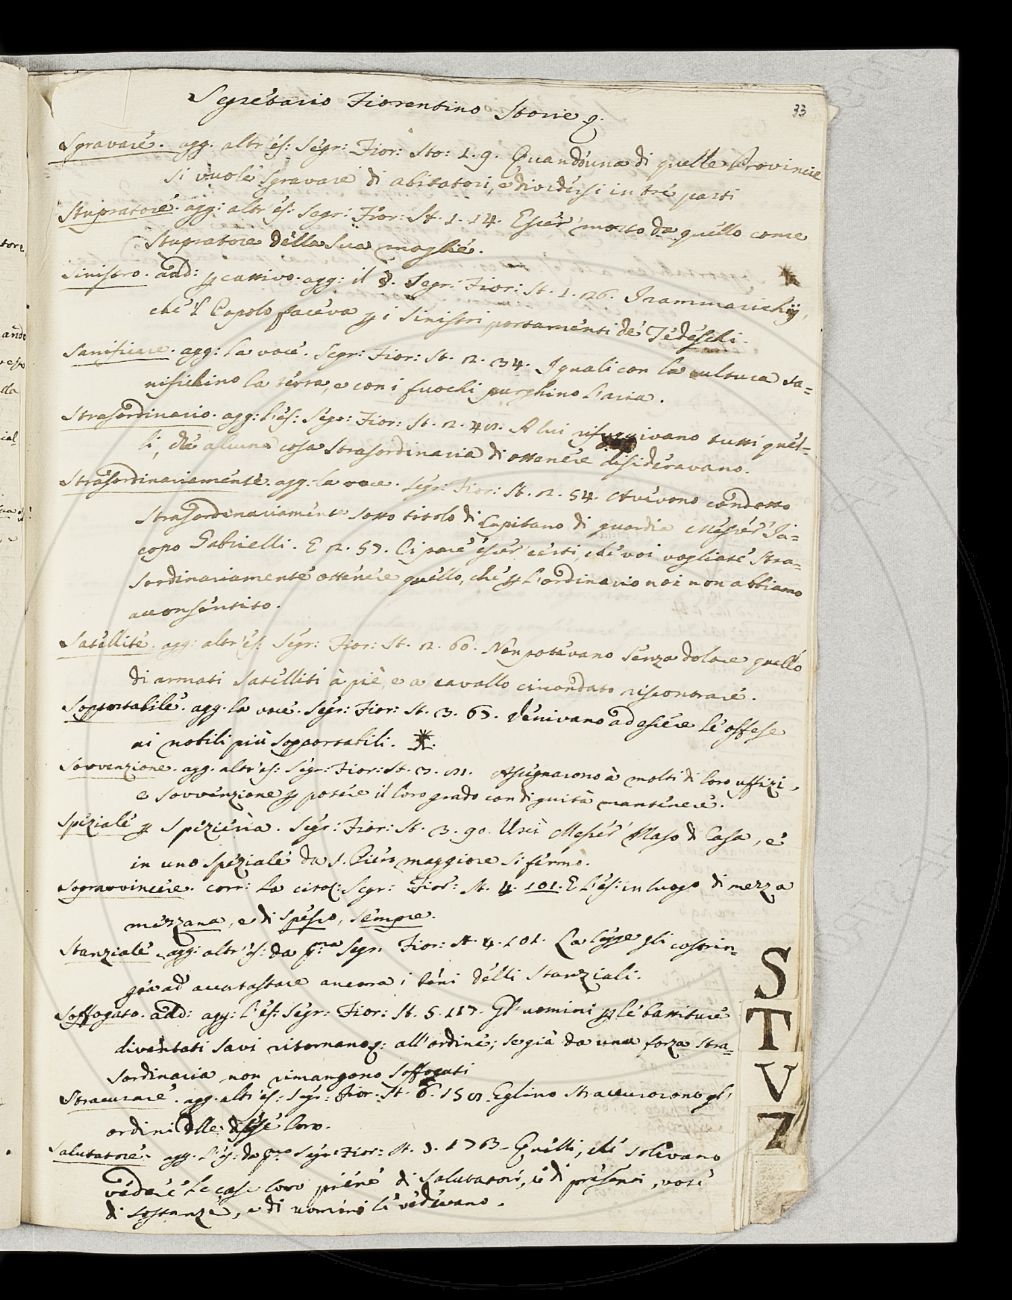 33
Segretario Fiorentino Storie
Sgravare. agg. altr'es: Segr: Fior: Sto: 1. 9. Quando una di quelle Provincie
si vuole sgravare di abitatori, e dividersi in tre parti
Stupratore. agg: altr'es: Segr: Fior: St. 1. 14. Esser morto da quello come
stupratore della sua moglie.
Sinistro. add: cattivo. agg: il 3. Segr: Fior: St. 1. 26. Irammarichij,
che 'l Popolo faceva i sinistri portamenti de' Tedeschi.
Sanificare. agg: la voce. Segr: Fior: St. 2. 34. I quali con la cultura sa=
nifichino la terra, e con i fuochi purghino l'aria.
Strasordinario. agg: l'es: Segr: Fior: St. 2. 42. A lui rifuggivano tutti quel=
li, che alcuna cosa strasordinaria di ottenere desideravano.
Strasordinariamente. agg. la voce. Segr: Fior: St. 2. 54. Avevono condotto
strasordinariamente sotto titolo di Capitano di guardia Messer Ja=
copo Gabrielli. E 2. 57. Ci pare esser certi che voi vogliate stra=
sordinariamente ottenere quello, che l'ordinario noi non abbiamo
acconsentito.
Satellite. agg: altr'es. Segr: Fior: St. 2. 60. Non potevano senza dolore quello
di armati satelliti à piè, e a cavallo circondato riscontrare.
Sopportabile. agg. la voce. Segr: Fior: St. 3. 67. Venivano ad essere le offese
ai nobili più sopportabili.
Sovvenzione. agg. altr'es: Segr: Fior: St. Assegnarono à molti di loro uffizi,
e sovvenzione potere il loro grado con dignità mantenere.
Speziale Spezieria. Segr: Fior: St. 3. 90. Uscì Messer Maso di Casa, e
in uno speziale da S. Piero maggiore si fermò.
Sopravvincere. corr: la citaz: Segr: Fior: St. 4. 101. E l'es: in luogo di mezza
mezzana, e di spesso, sempre.
Stanziale. agg: altr'es: da Segr: Fior: St. 4. 101. La legge gli costrin=
geva ad accatastare ancora i beni delli stanziali.
Soffogato. add: agg: l'es: Segr: Fior: St. 5. 117. Gl'uomini le battiture
diventati savi ritornano all'ordine; se già da una forza stra=
sordinaria non rimangono soffogati
Stracurare. agg. altr'es: Segr: Fior: St. 6. 152. Eglino straccurorono gl'
ordini delle difese loro.
Salutatore. agg. l'es: da Segr: Fior: St. 1763. Quelli, che solevano
vedere le case loro piene di salutatori, e di presenti, vote
di sostanze, e di uomini le vedevano.
S
T
V
Z